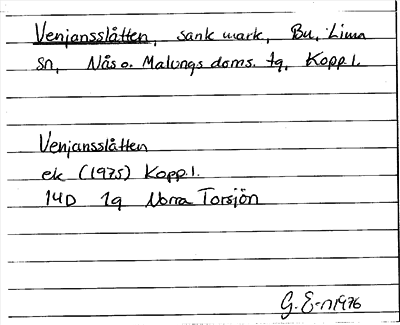 Venjansslåtten, sank mark, Bu, Lima
sn, Nås o. Malungs doms. tg, Kopp.l.
Venjansslåtten
ek (1975) Kopp.l.
14D 1g Norra Torsjön
G. E-n 1976